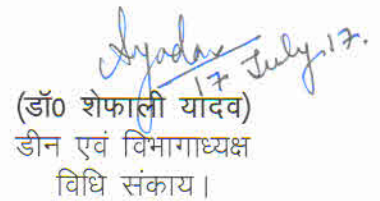 Syadav
17 July, 17.
(डॉ0 शेफाली यादव)
डीन एवं विभागाध्यक्ष
विधि संकाय।